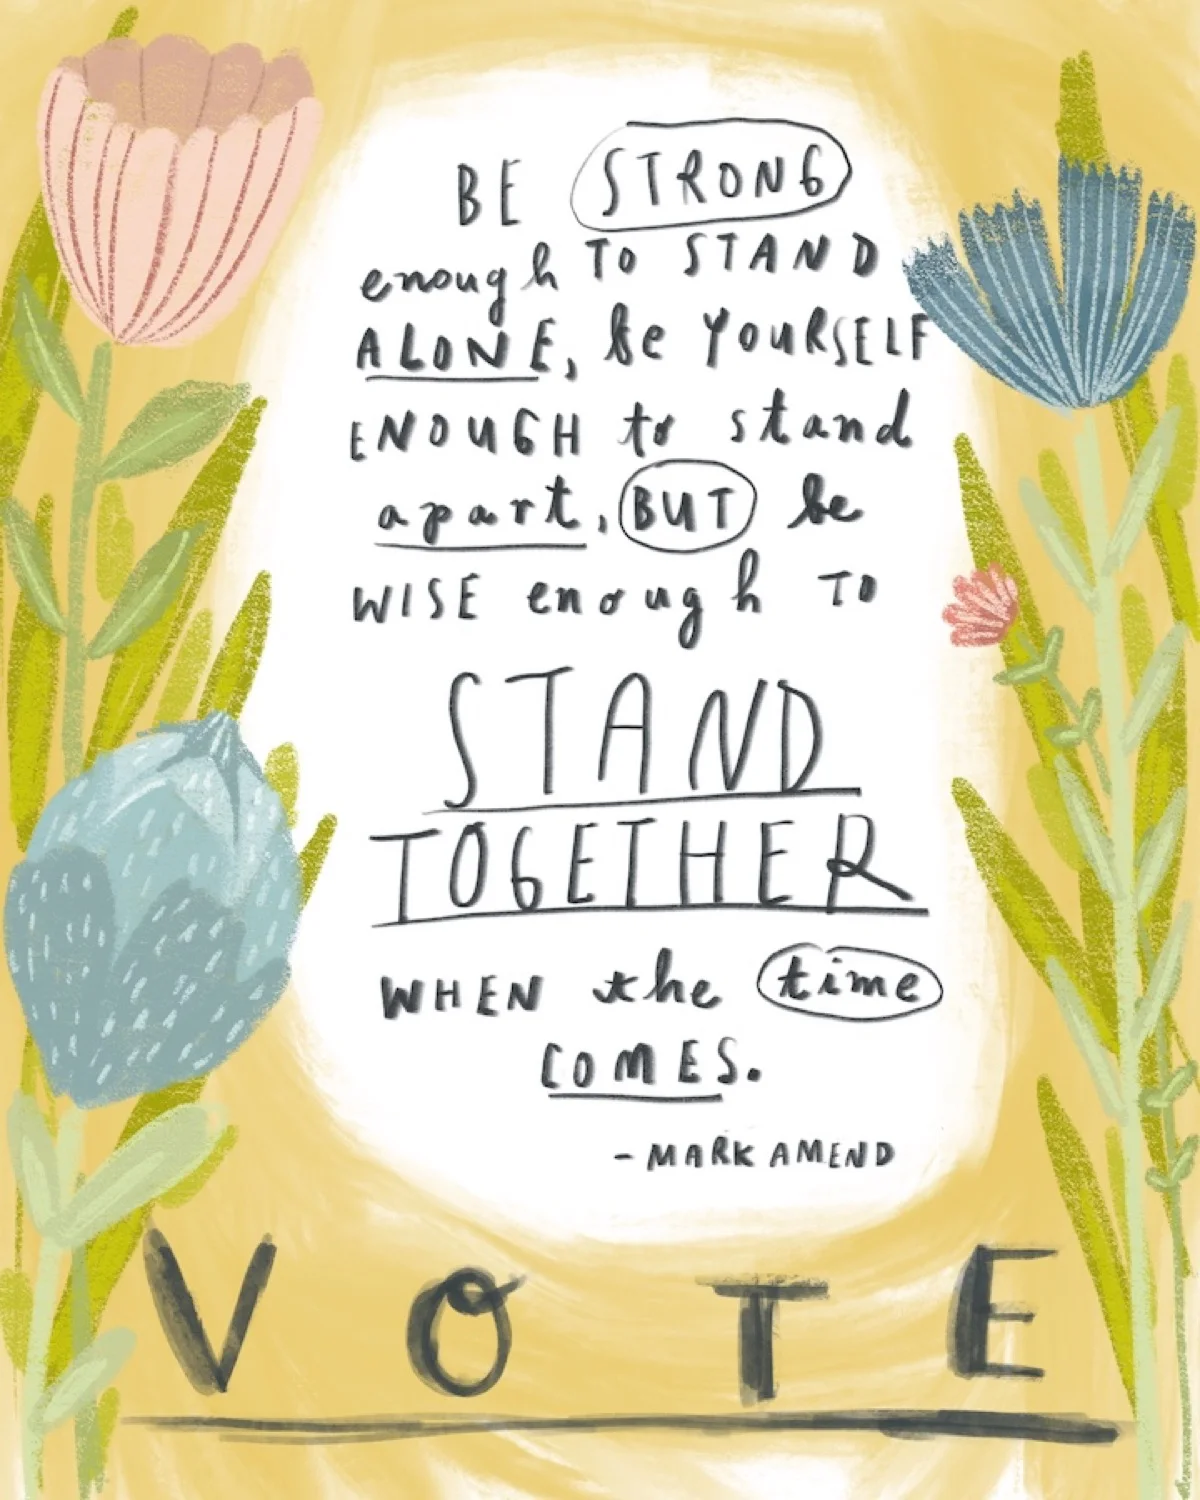 BE STRONG
enough TO STAND
ALONE, be YOURSELF
ENOUGH to stand
apart, BUT be
WISE enough TO
STAND
TOGETHER
WHEN the time
COMES.
- MARK AMEND
VOTE